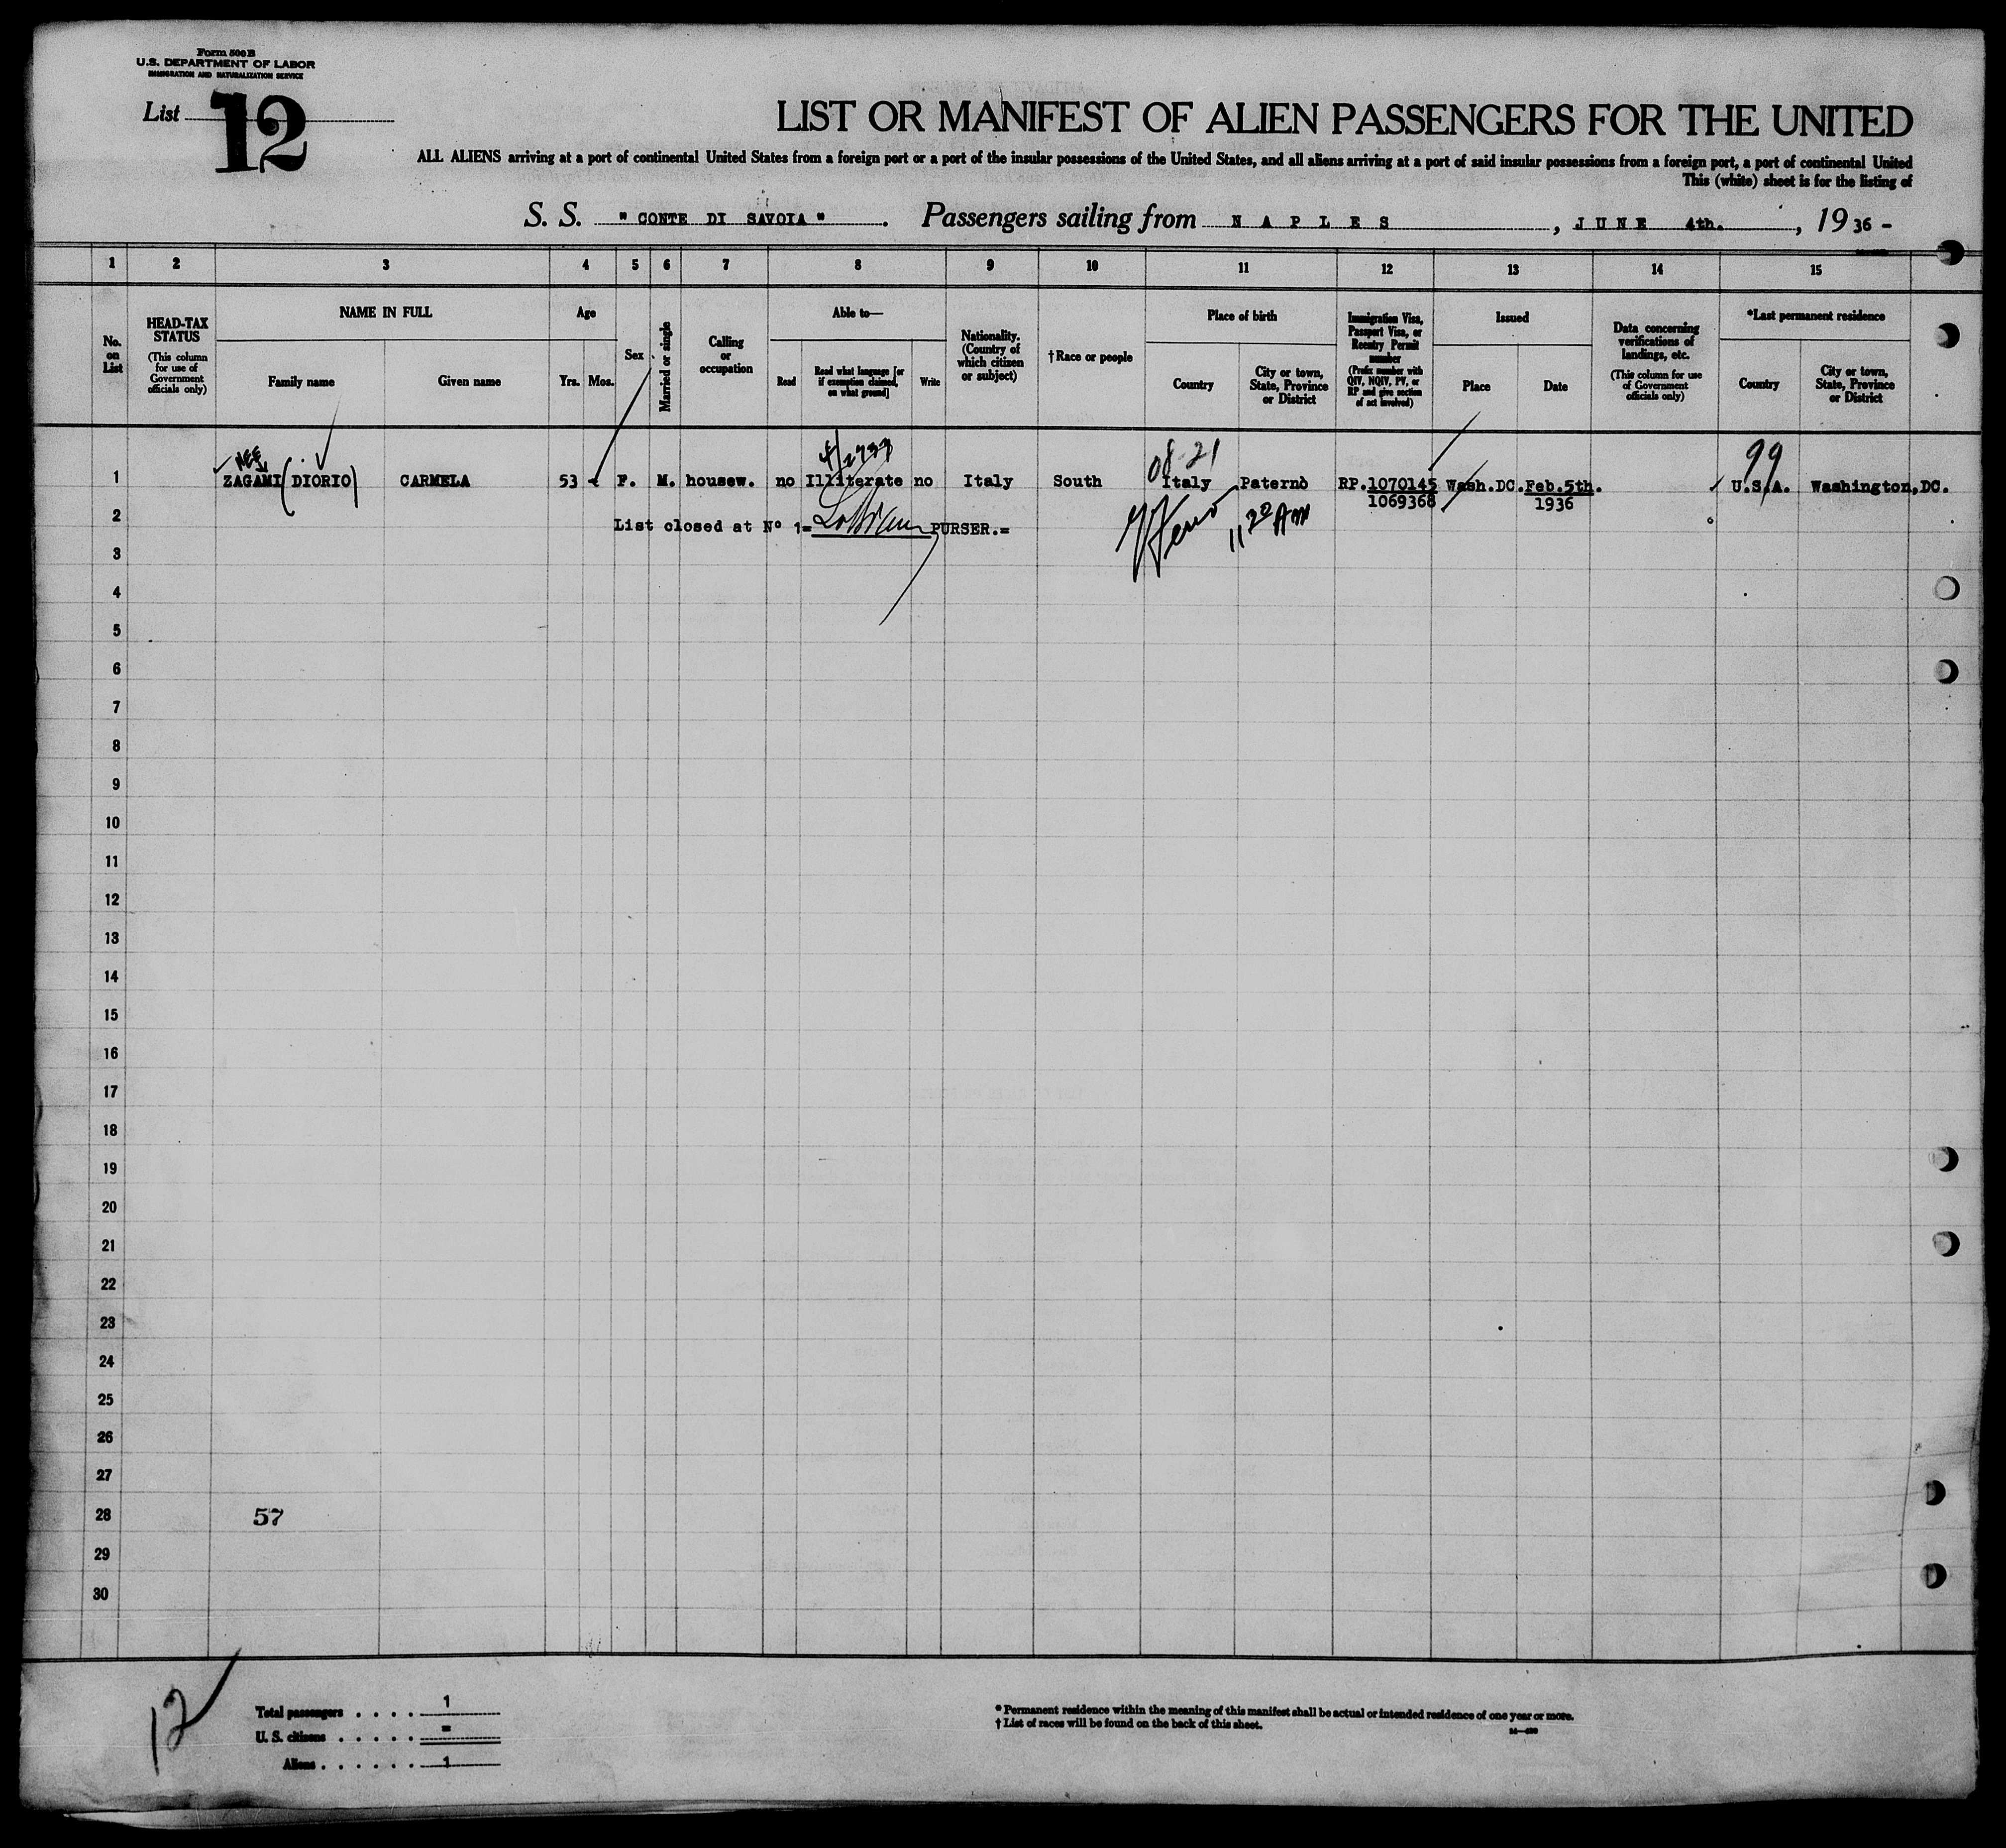 Form 500 B
U.S. DEPARTMENT OF LABOR
IMMIGRATION AND NATURALIZATION SERVICE
List 12
LIST OR MANIFEST OF ALIEN PASSENGERS FOR THE UNITED
ALL ALIENS arriving at a port of continental United States from a foreign port or a port of the insular possessions of the United States, and all aliens arriving at a port of said insular possessions from a foreign port, a port of continental United
This (white) sheet is for the listing of
S. S. " CONTE DI SAVOIA " . Passengers sailing from N A P L E S , J U N E 4th. , 19 36 -
1 2 3 4 5 6 7 8 9 10 11 12 13 14 15
No. on List
HEAD-TAX STATUS
(This column for use of Government officials only)
NAME IN FULL
Family name
Given name
Age
Yrs. Mos.
Sex
Married or single
Calling or occupation
Able to—
Read
Read what language [or if exemption claimed, on what ground]
Write
Nationality. (Country of which citizen or subject)
† Race or people
Place of birth
Country
City or town, State, Province or District
Immigration Visa, Passport Visa, or Reentry Permit number
(Prefix number with QIV, NQIV, PV, or RP and give section of act involved)
Issued
Place
Date
Data concerning verifications of landings, etc.
(This column for use of Government officials only)
*Last permanent residence
Country
City or town, State, Province or District
NEE
08-21
99
1 ZAGAMI (DIORIO) CARMELA 53 F. M. housew. no Illiterate no Italy South Italy Paternò RP.1070145 Wash.DC. Feb.5th. U.S.A. Washington,DC.
1069368 1936
2 List closed at N° 1= PURSER.=
11 20 AM
3
4
5
6
7
8
9
10
11
12
13
14
15
16
17
18
19
20
21
22
23
24
25
26
27
28 57
29
30
12
Total passengers . . . . 1
U. S. citizens . . . . . =
Aliens . . . . . . 1
* Permanent residence within the meaning of this manifest shall be actual or intended residence of one year or more.
† List of races will be found on the back of this sheet.